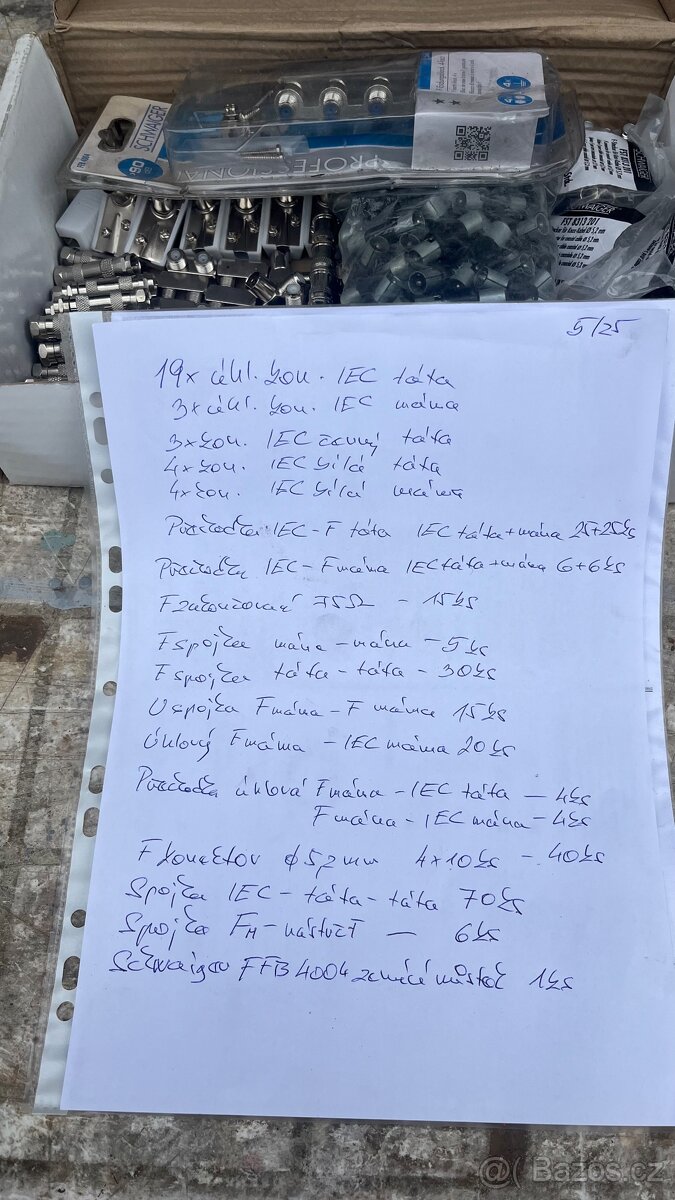 SCHWAIGER
PROFESSIONAL
FST 8313 201
5/25
19x úhl. kon. IEC táta
3x úhl. kon. IEC máma
3x kon. IEC černý táta
4x kon. IEC bílá táta
4x kon. IEC bílá máma
Přechodka IEC-F táta IEC táta+máma 25+25ks
Přechodka IEC-F máma IEC táta+máma 6+6ks
F zakončovací 75Ω - 15ks
F spojka máma-máma - 5ks
F spojka táta-táta - 30ks
U spojka F máma - F máma 15ks
Úhlový F máma - IEC máma 20ks
Přechodka úhlová F máma - IEC táta - 4ks
F máma - IEC máma - 4ks
F konektor ϕ 5,2mm 4x10ks - 40ks
Spojka IEC - táta-táta 70ks
Spojka FM-nástrč - 6ks
Schwaiger FFB 4004 zemnící můstek 1ks
@ Bazos.cz